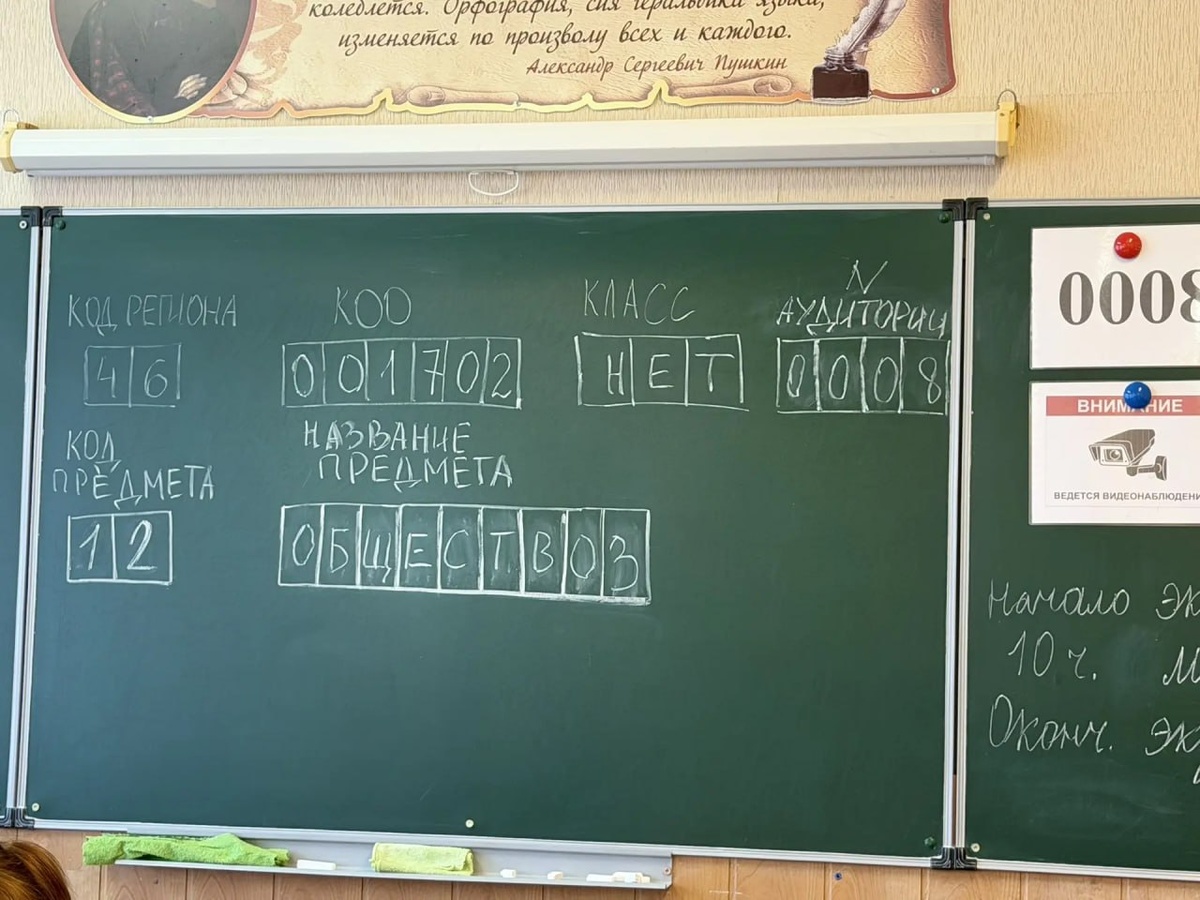 колеблется. Орфография, сия геральдика языка,
изменяется по произволу всех и каждого.
Александр Сергеевич Пушкин
КОД РЕГИОНА
46
КОО
001702
КЛАСС
НЕТ
N
АУДИТОРИИ
0008
КОД
ПРЕДМЕТА
12
НАЗВАНИЕ
ПРЕДМЕТА
ОБЩЕСТВОЗ
0008
ВНИМАНИЕ
ВЕДЕТСЯ ВИДЕОНАБЛЮДЕНИ
Начало эк
10 ч. м
Оконч. эк